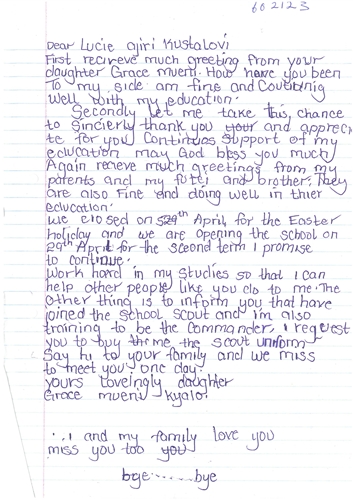 602123
Dear Lucie ajiri Kustalovi
First recireve much greeting from your
daughter Grace mueni. How have you been
To my side am fine and Coutinig
well with my education.
Secondly let me take this, chance
to Sincierly thank you your and apprecia
te for you Continues Support of my
education may God bless you much
Again recieve much greetings from my
patents and my and brother. They
are also Fine and doing well in thier
education.
We closed on April for the Easter
holiday and we are opening the school on
29th April for the Scecond term I promise
to continue.
Work hoard in my Studies so that I can
help other people like you do to me. The
other thing is to inform you that have
joined the School Scout and i'm also
training to be the Commander, I request
you to buy the me the scout uniform
Say hi to your family and we miss
to meet you one day.
yours loveingly daughter
Grace mueni kyalo.
...I and my family love you
miss you too you
bye......bye